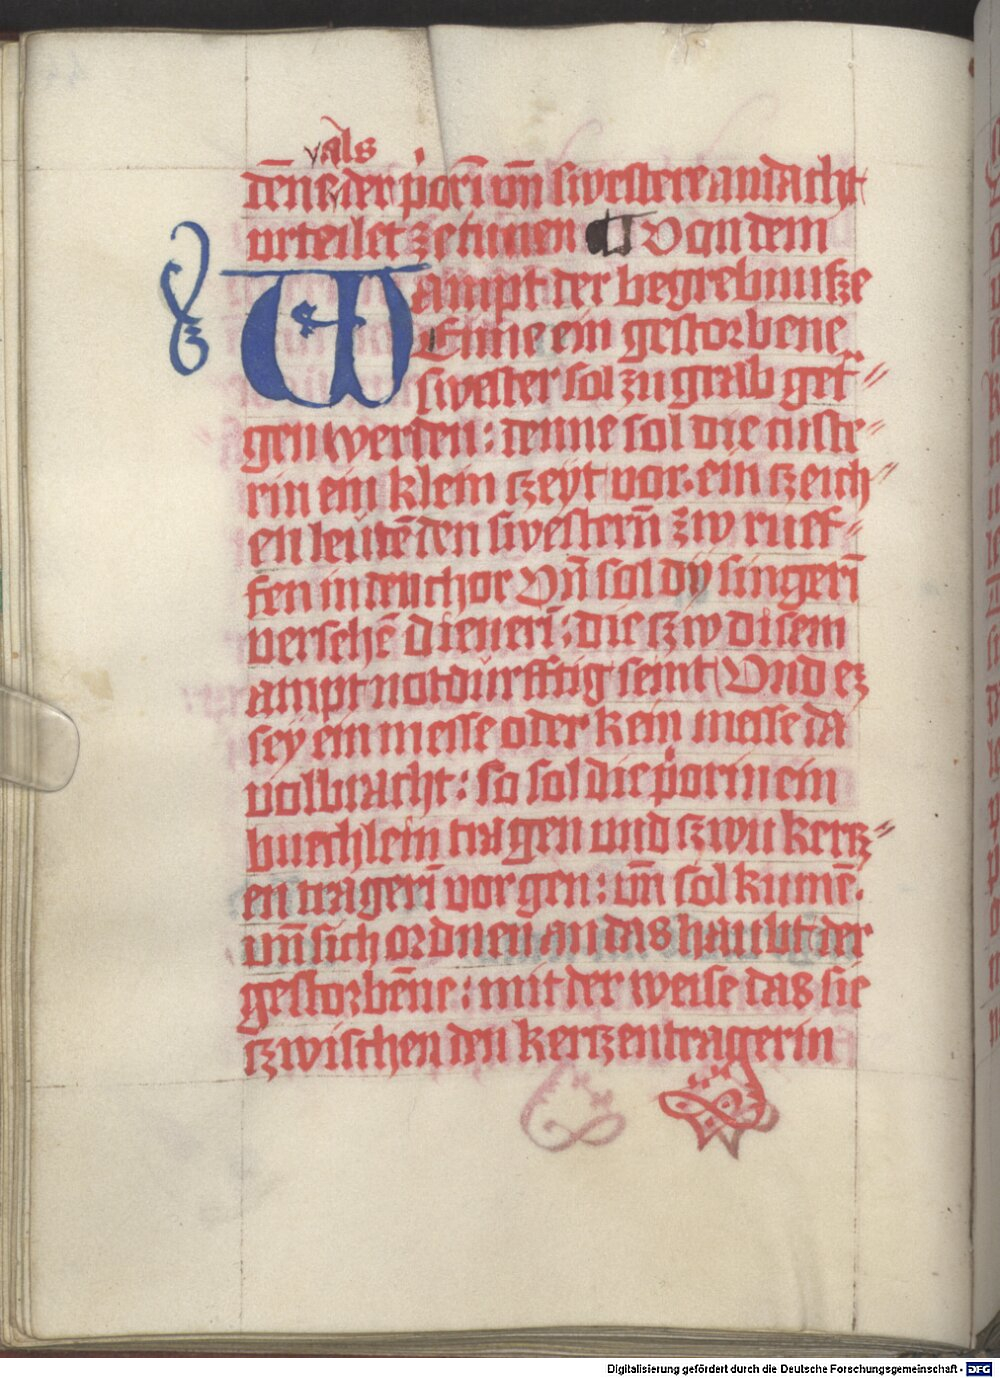 als
den der p̊orī vn̄ swestere andacht
vrteilet ze tunen Von dem
ampt der begrebnusze
WEnne ein gestorbene
swester sol zu grab get=
gen werden: denne sol die custe=
rin ein klein czeyt vor. ein czeich=
en leutē den swesterñ zw ruef=
fen in den chor Vn̄ sol dy singerī
versehē dienerī: die czw disem
ampt notdurfftig seint Vnd ez
sey ein messe oder kein messe da
volbracht: so sol die p̊orin ein
buechlein tragen und czwu kertz=
en tragerī vor gen: vn̄ sol kumē.
vn̄ sich ordnen an das haubt der
gestorbēne: mit der weise das sie
czwischen den kertzentragerin
Digitalisierung gefördert durch die Deutsche Forschungsgemeinschaft - DFG